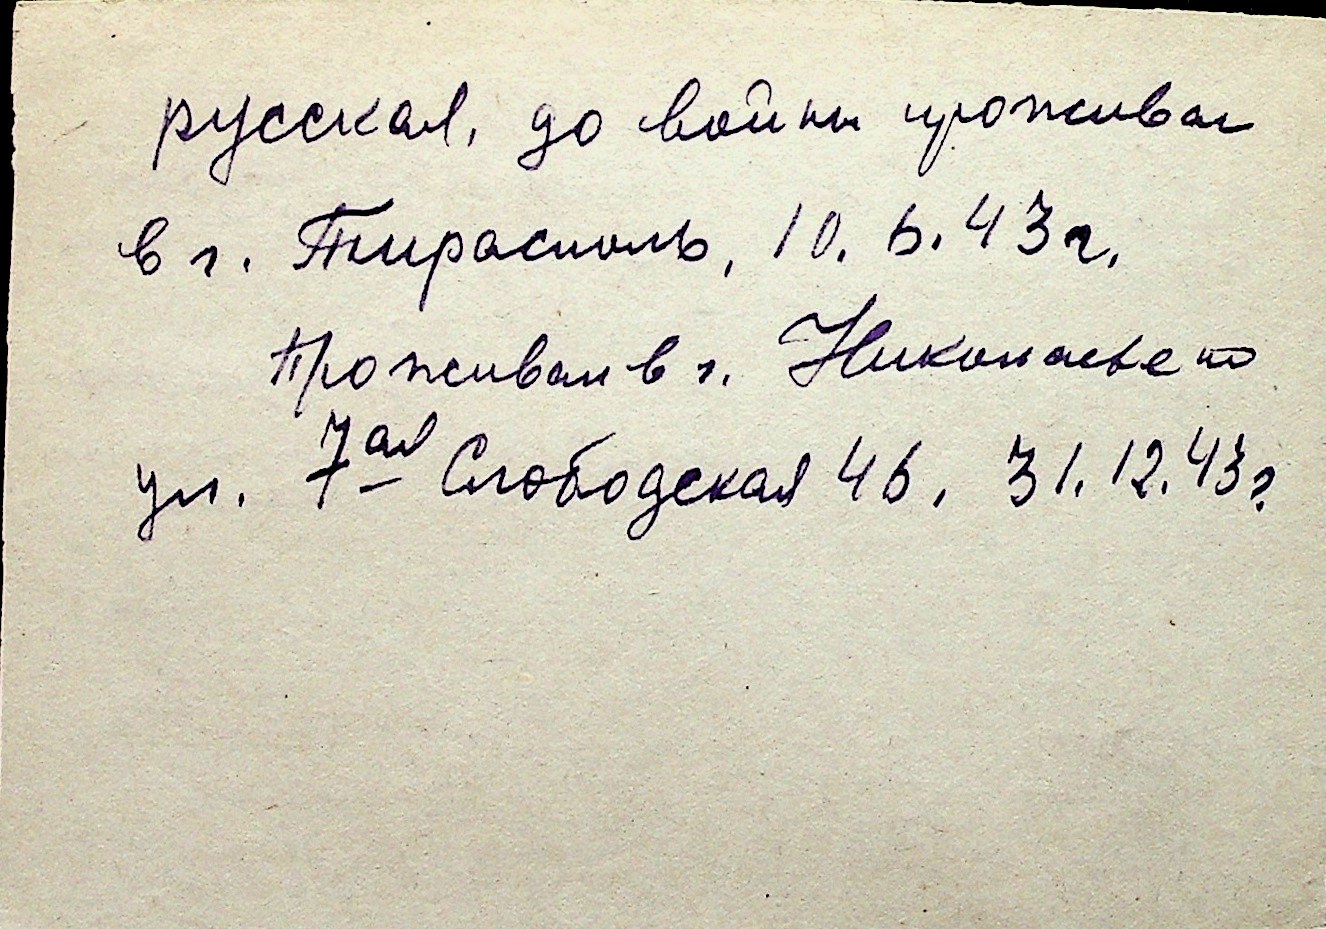 русская, до войны проживал
в г. Тирасполь, 10.6.43г.
Проживал в г. Николаеве по
ул. 7ая Слободская 46, 31.12.43г.